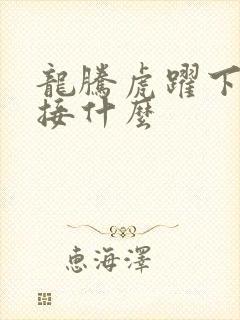 龍騰虎躍下
接什麼
惠海澤